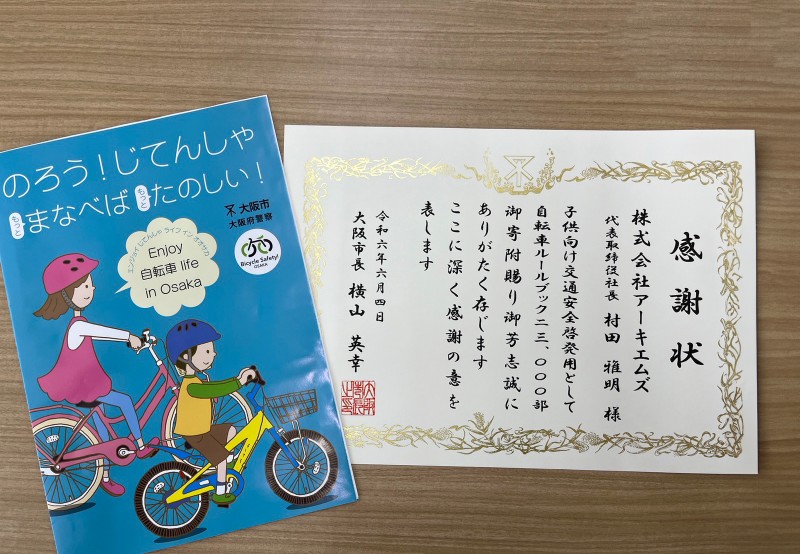 のろう！じてんしゃ
もっとまなべばもっとたのしい！
大阪市
大阪府警察
エンジョイ じてんしゃ ライフ イン オオサカ
Enjoy
自転車 life
in Osaka
Bicycle Safety!
OSAKA
感謝状
株式会社アーキエムズ
代表取締役社長 村田 雅明 様
子供向け交通安全啓発用として
自転車ルールブック二三、〇〇〇部
御寄附賜り御芳志誠に
ありがたく存じます
ここに深く感謝の意を
表します
令和六年六月四日
大阪市長 横山 英幸